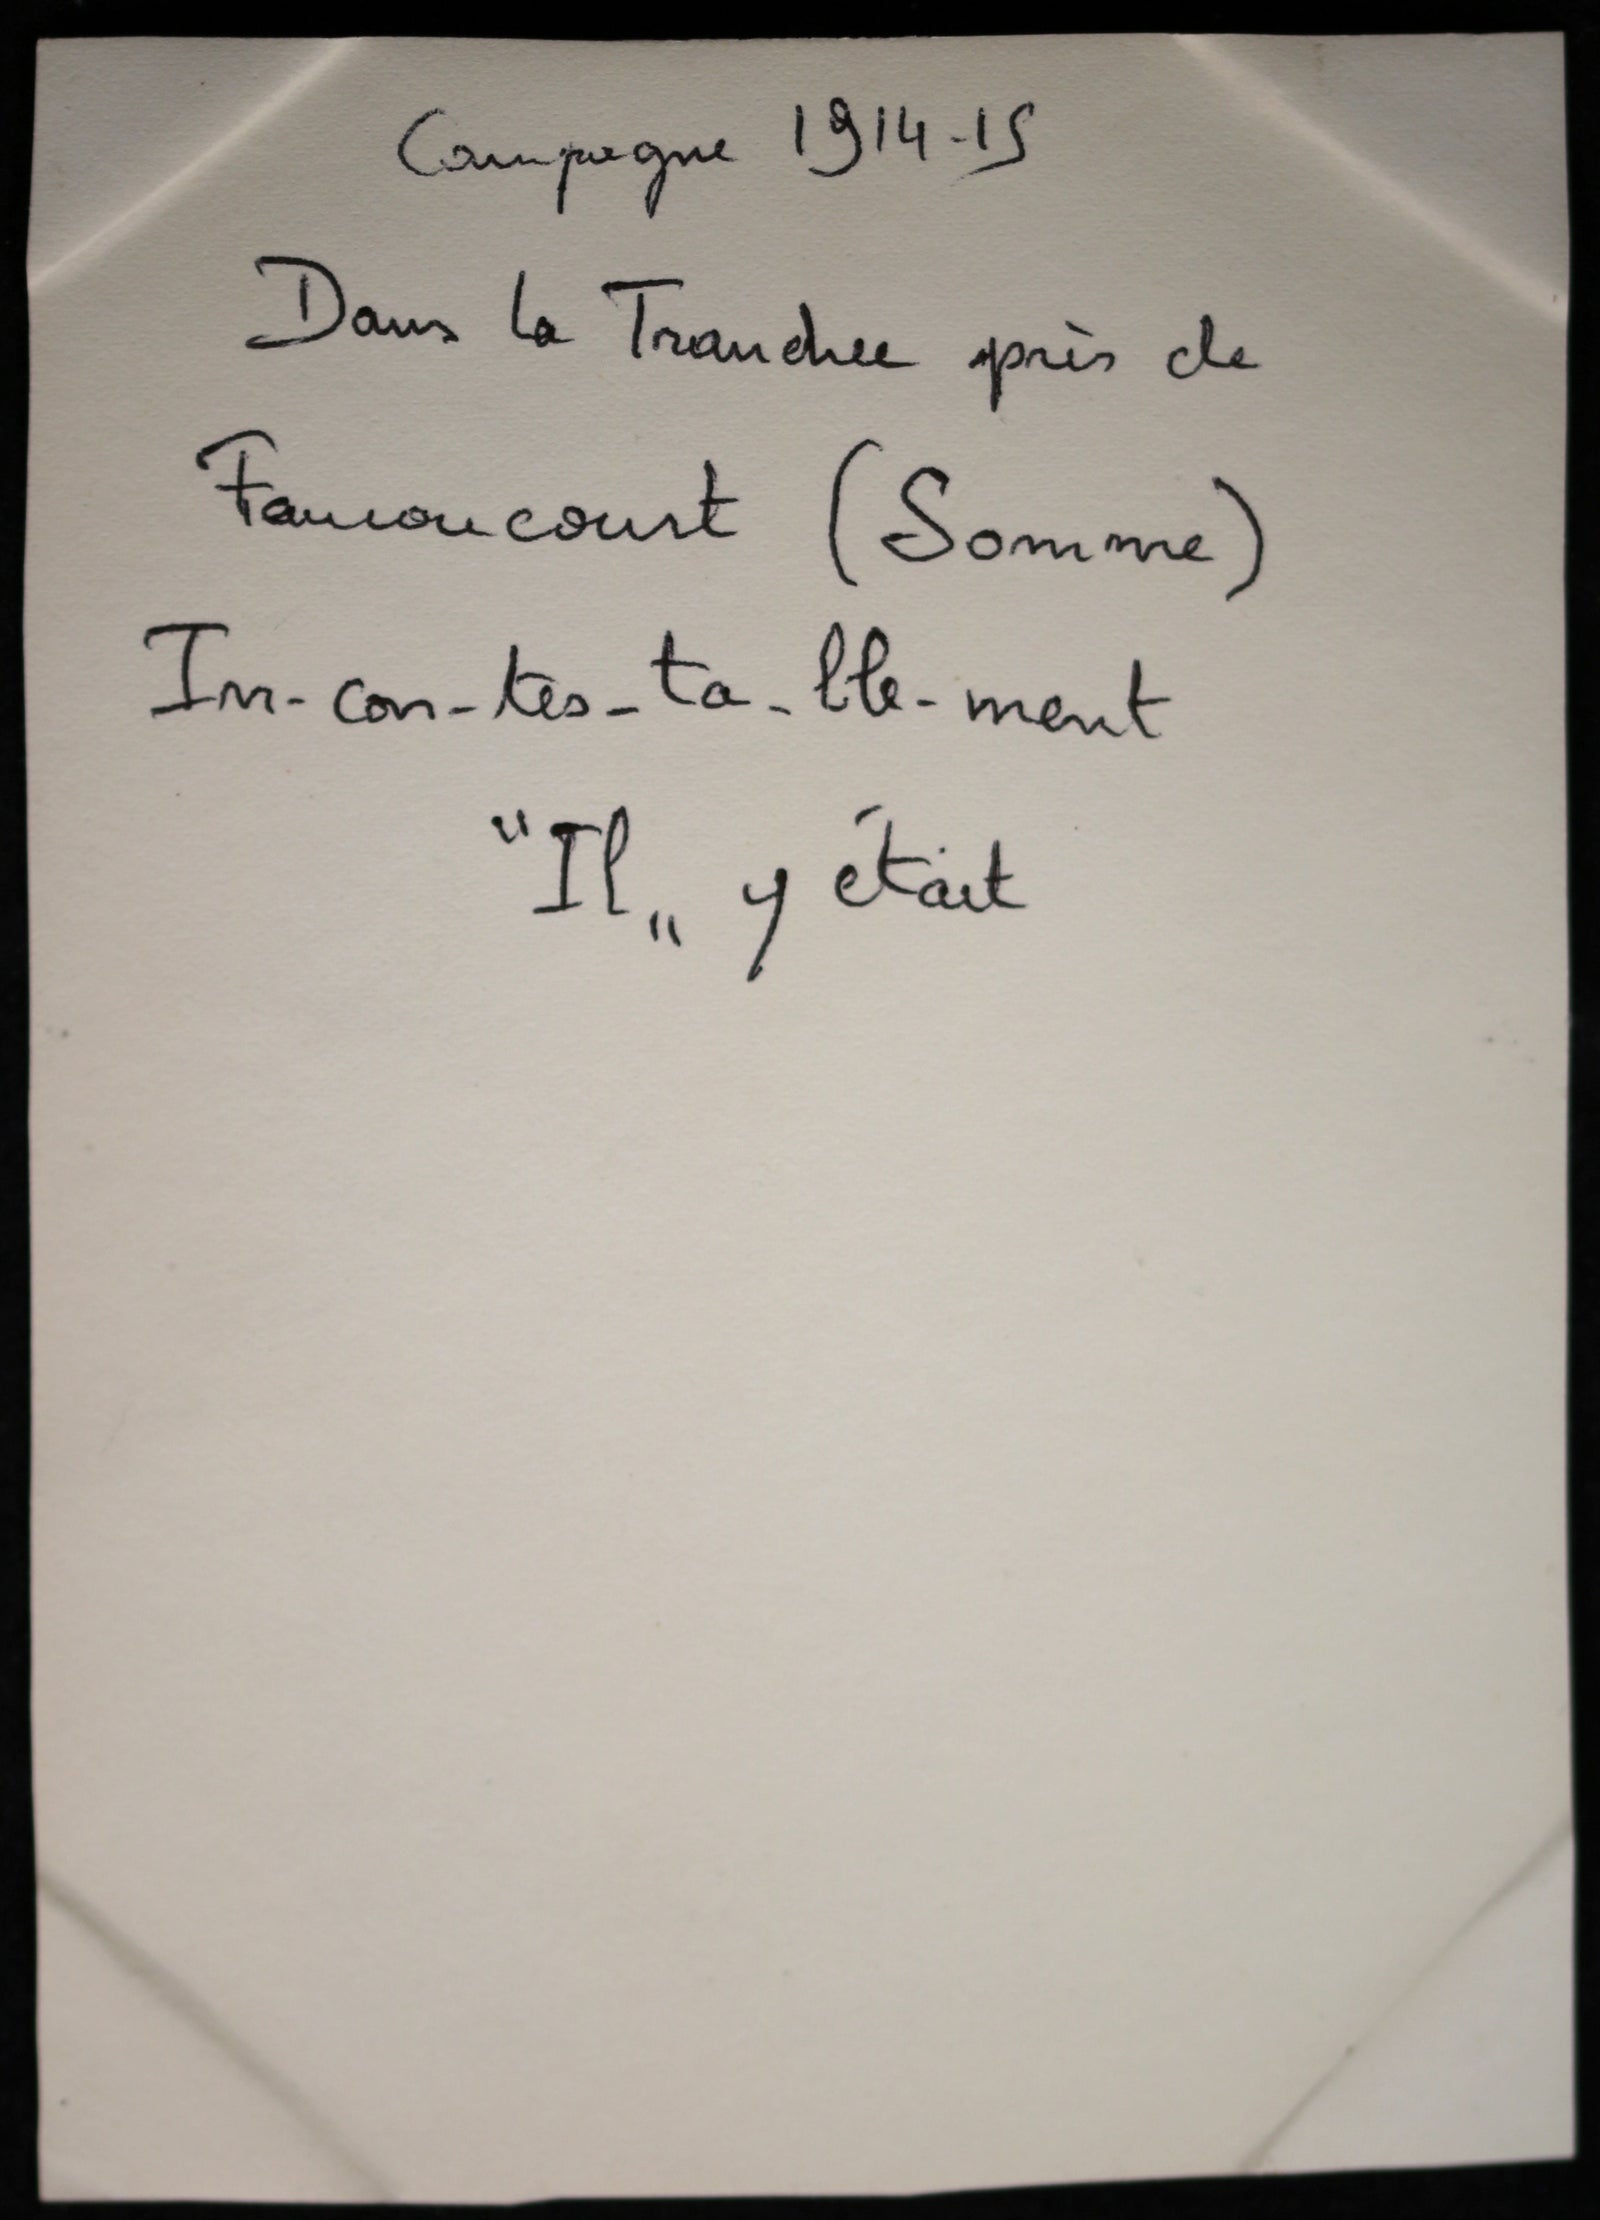 Campagne 1914-15
Dans la Tranchee près de
(Somme)
In-con-tes-ta-ble-ment
"Il„ y était